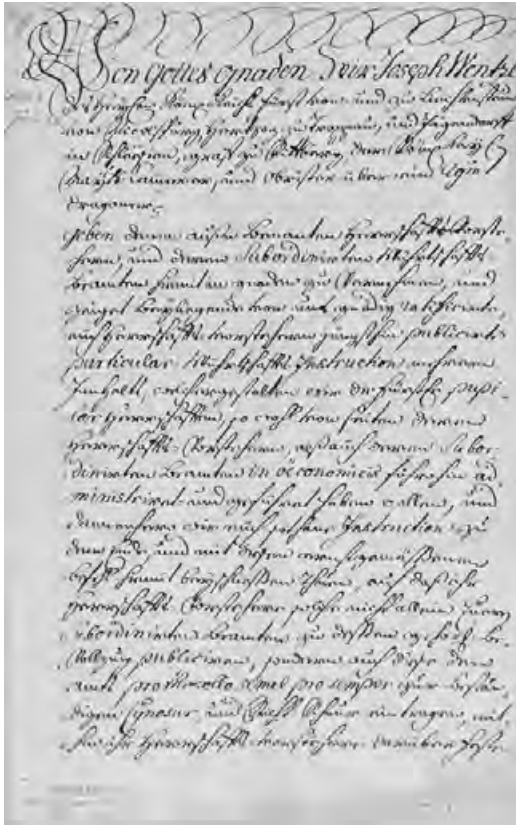 Von Gottes Gnaden Wir Joseph Wentzl
des Heyligen Römischen Reichs Fürst von und zu Liechtenstein
von Nicolspurg Hertzog zu Troppau, und Jägerndorff
in Schlesien, Graff zu Rittberg, der Röm. Kay.
May. Cammerer, und Obrister über ein Regim.
Dragoner
Geben denen Herrschaffts Vorste-
hern, und denen Subordinirten Würthschaffts
Beambten hiemit in gnaden zu vernehmen, was
von uns gnädig ratificirte,
Herrschaffts Vorstehern jüngsthin publicirte
particular Würthschaffts Instruction mehreren
Innhalts, welchergestalten wir die Fürstl. pupil-
lar Herrschafften, so wohl von seiten deren
Herrschaffts Vorstehern, alß auch deren Subor-
dinirten Beambten in oeconomicis führohin ad-
ministriret und geführet haben wollen, und
wir auch sothane Instruction zu
dem Ende und mit
befehl hiemit beyschließen Ihnen, auf daß ihr
Herrschaffts Vorstehere solche nicht allein Euren
subordinirten Beambten zu dessen be-
Vollzug publiciren, sonderen auch diese dem
Ambts protocollo semel pro semper zur bestän-
digen Cynosur, und Richt Schnur eintragen, mit-
hin ihr Herrschaffts Vorstehere darüber feste